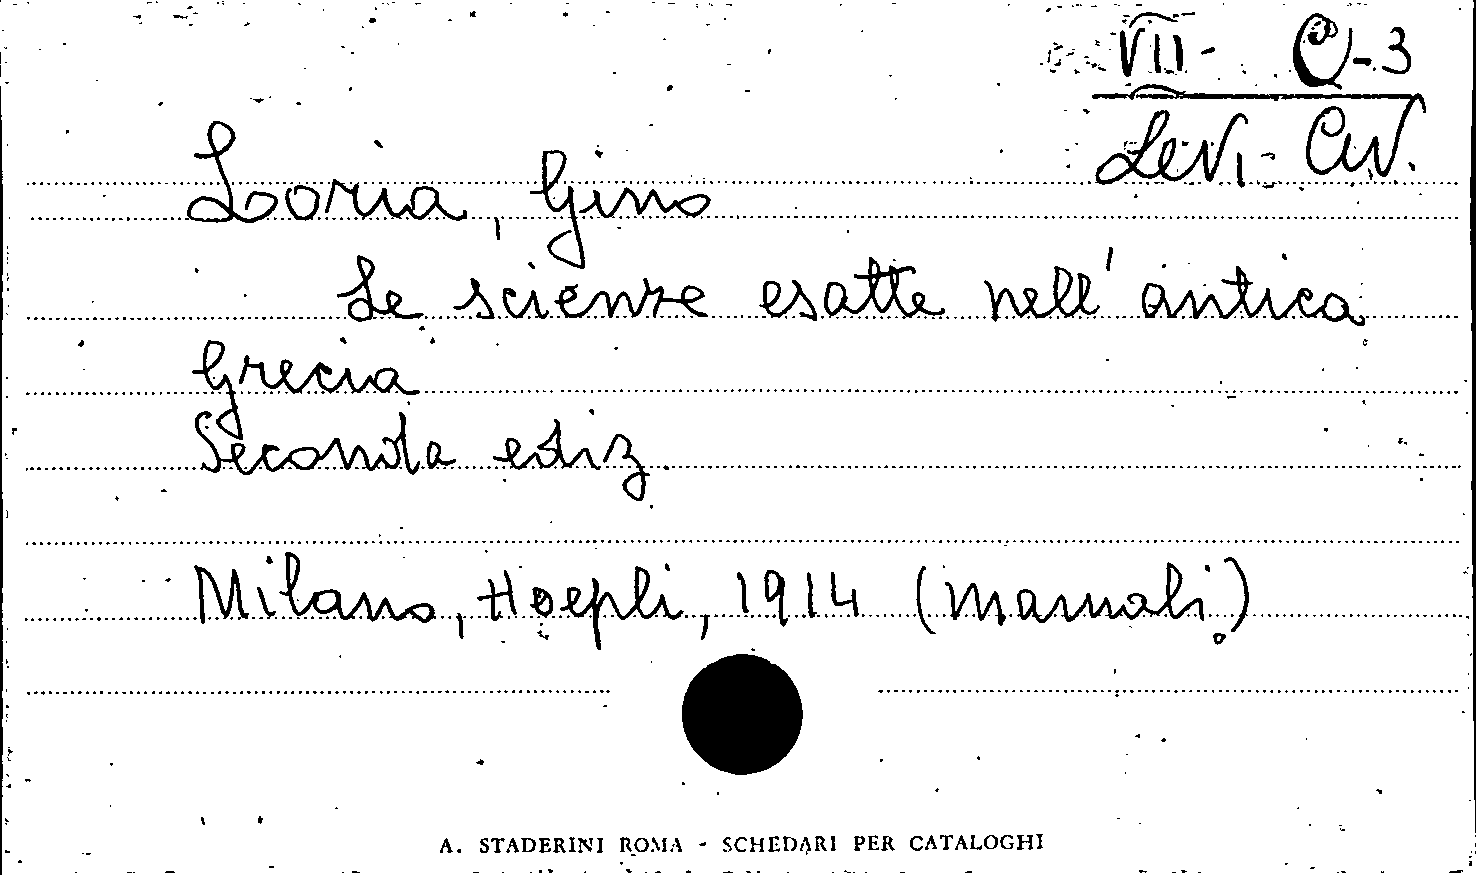 VII - Q-3
Levi-Civ.
Loria, Gino
Le scienze esatte nell'antica
Grecia
Seconda ediz
Milano, Hoepli, 1914 (Manuali.)
A. STADERINI ROMA - SCHEDARI PER CATALOGHI